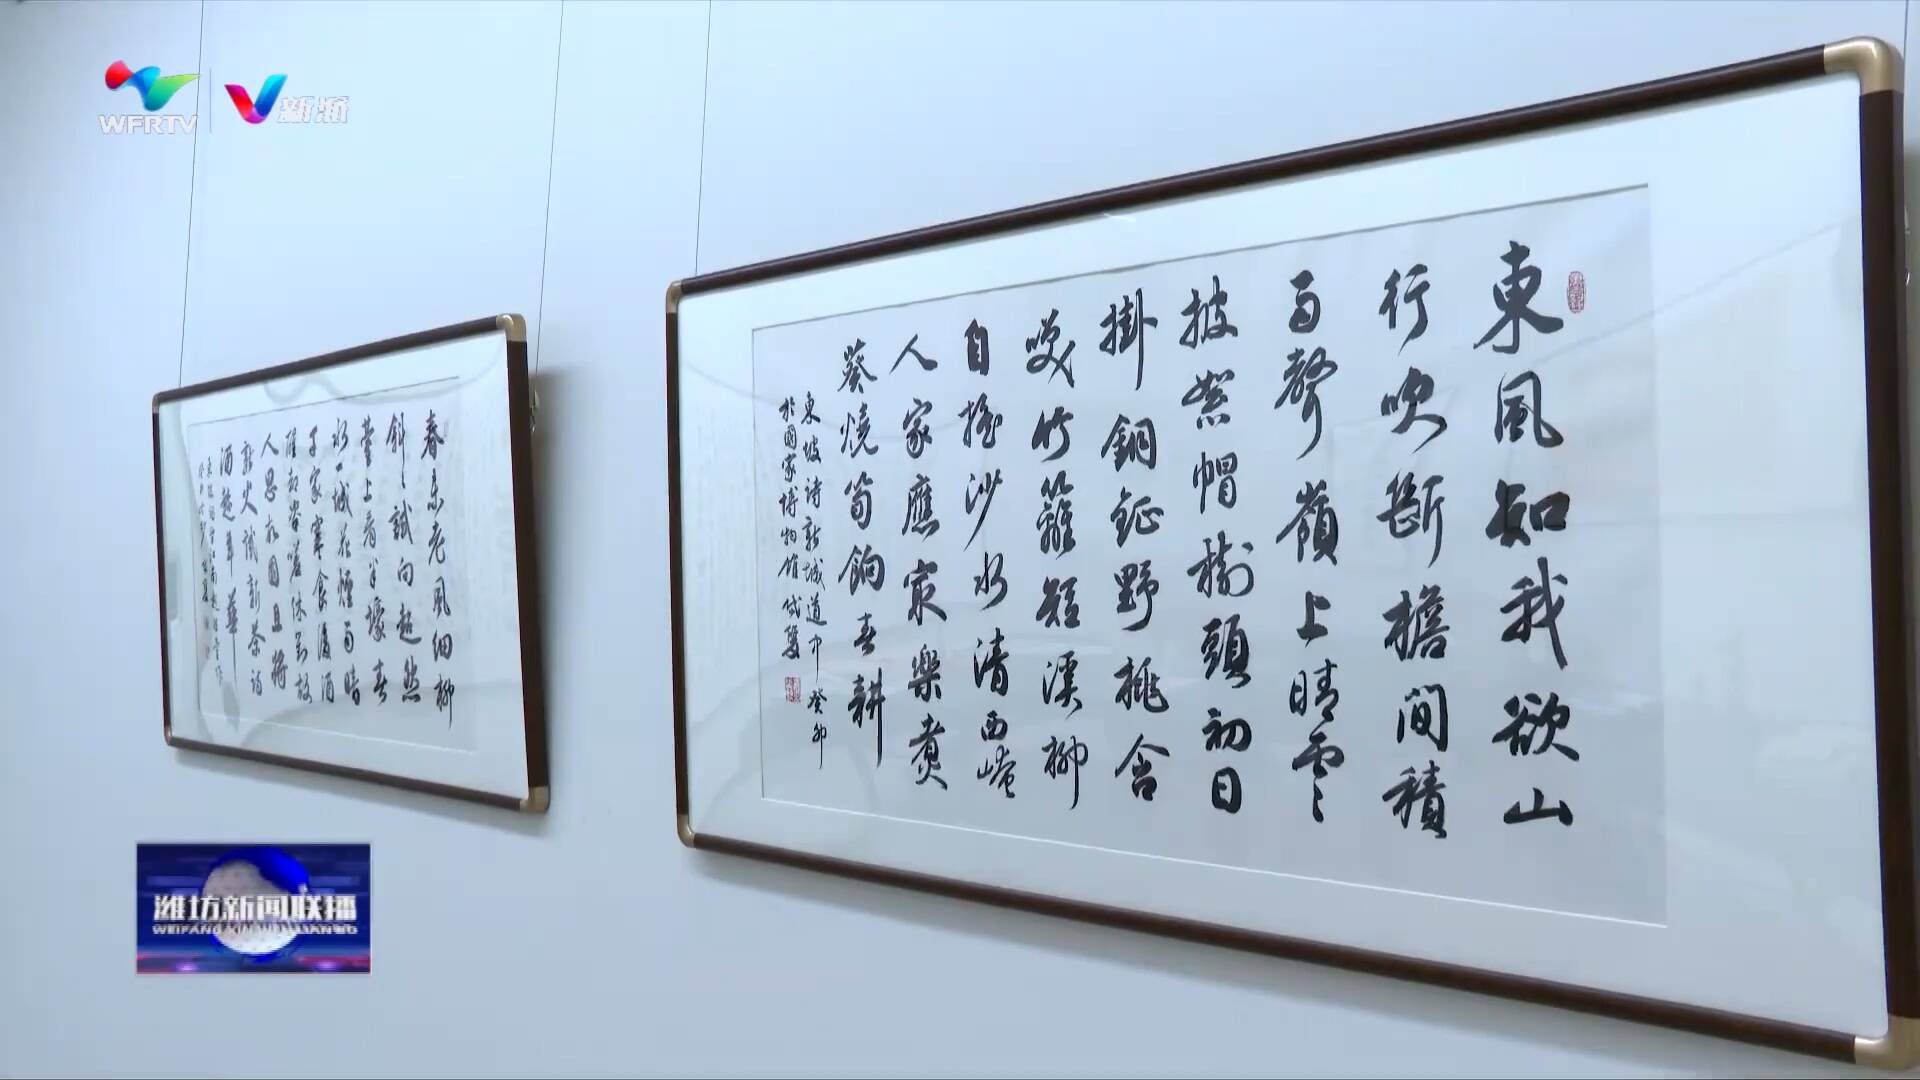 WFRTV
東風知我欲山
行吹斷檐間積
雨聲嶺上晴雲
披絮帽樹頭初日
掛銅鉦野桃含
笑竹籬短溪柳
自搖沙水清西崦
人家應最樂煮
葵燒筍餉春耕
東坡詩新城道中 癸卯
於國家博物館
春未老風細柳
斜〻試向超然
臺上看半壕春
水一城花煙雨暗
千家寒食後酒
醒却咨嗟休對故
人思故國且將
新火試新茶詩
酒趁年華
潍坊新闻联播
WEIFANG XIN WEN LIAN BO